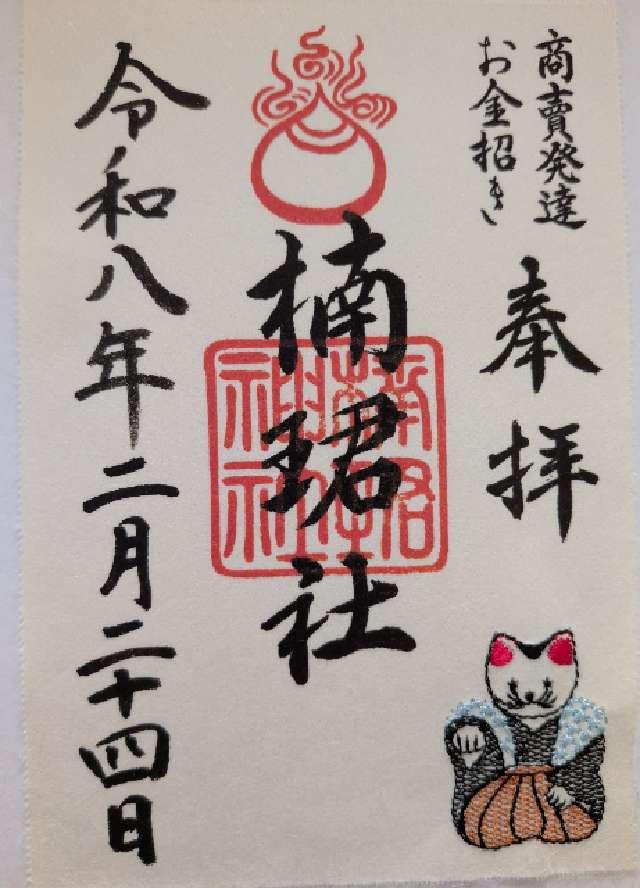 商賣発達
お金招き
奉拝
楠珺社
令和八年二月二十四日